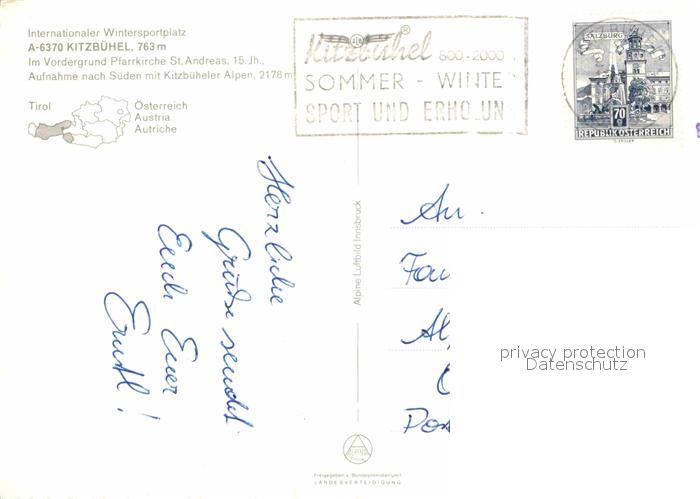 Internationaler Wintersportplatz
A-6370 KITZBÜHEL, 763 m
Im Vordergrund Pfarrkirche St. Andreas, 15. Jh.,
Aufnahme nach Süden mit Kitzbüheler Alpen, 2178 m
Tirol
Österreich
Austria
Autriche
Kitzbühel ® 800-2000
SOMMER - WINTE
SPORT UND ERHOLUN
SALZBURG
70
REPUBLIK ÖSTERREICH
Herzliche
Grüße sendet
Euch Euer
Ernstl!
Alpine Luftbild Innsbruck
An
Fam
Al
Pos
privacy protection
Datenschutz
Freigegeben v. Bundesministerium f.
LANDESVERTEIDIGUNG